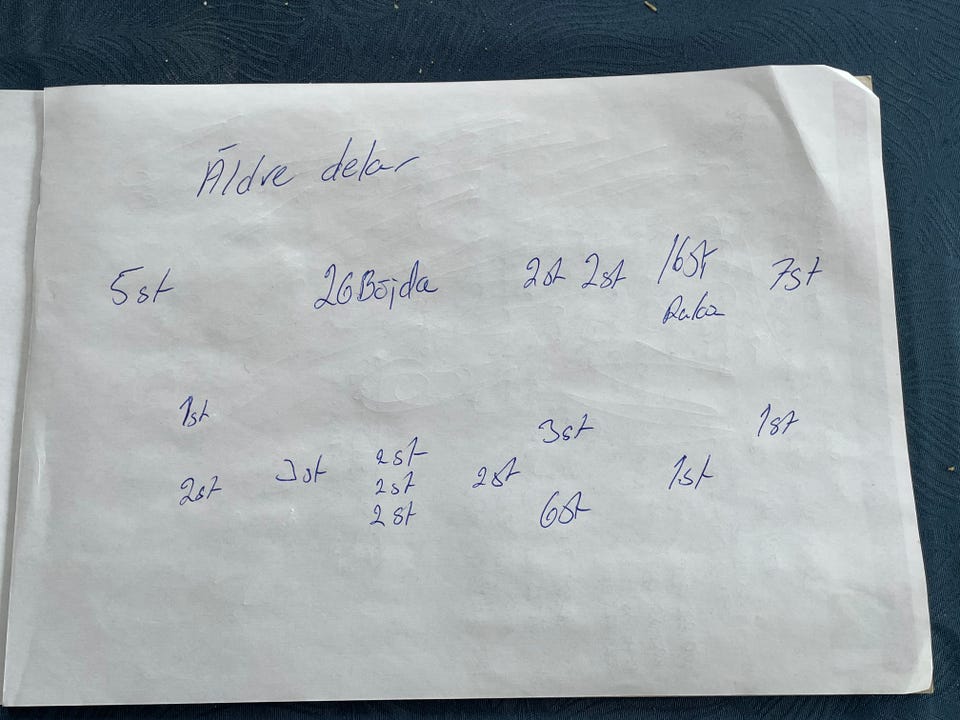 Äldre delar
5st 26Böjda 2st 2st 16st 7st
Raka
1st 3st 1st
2st 3st 2st 2st 1st
2st
2st 6st